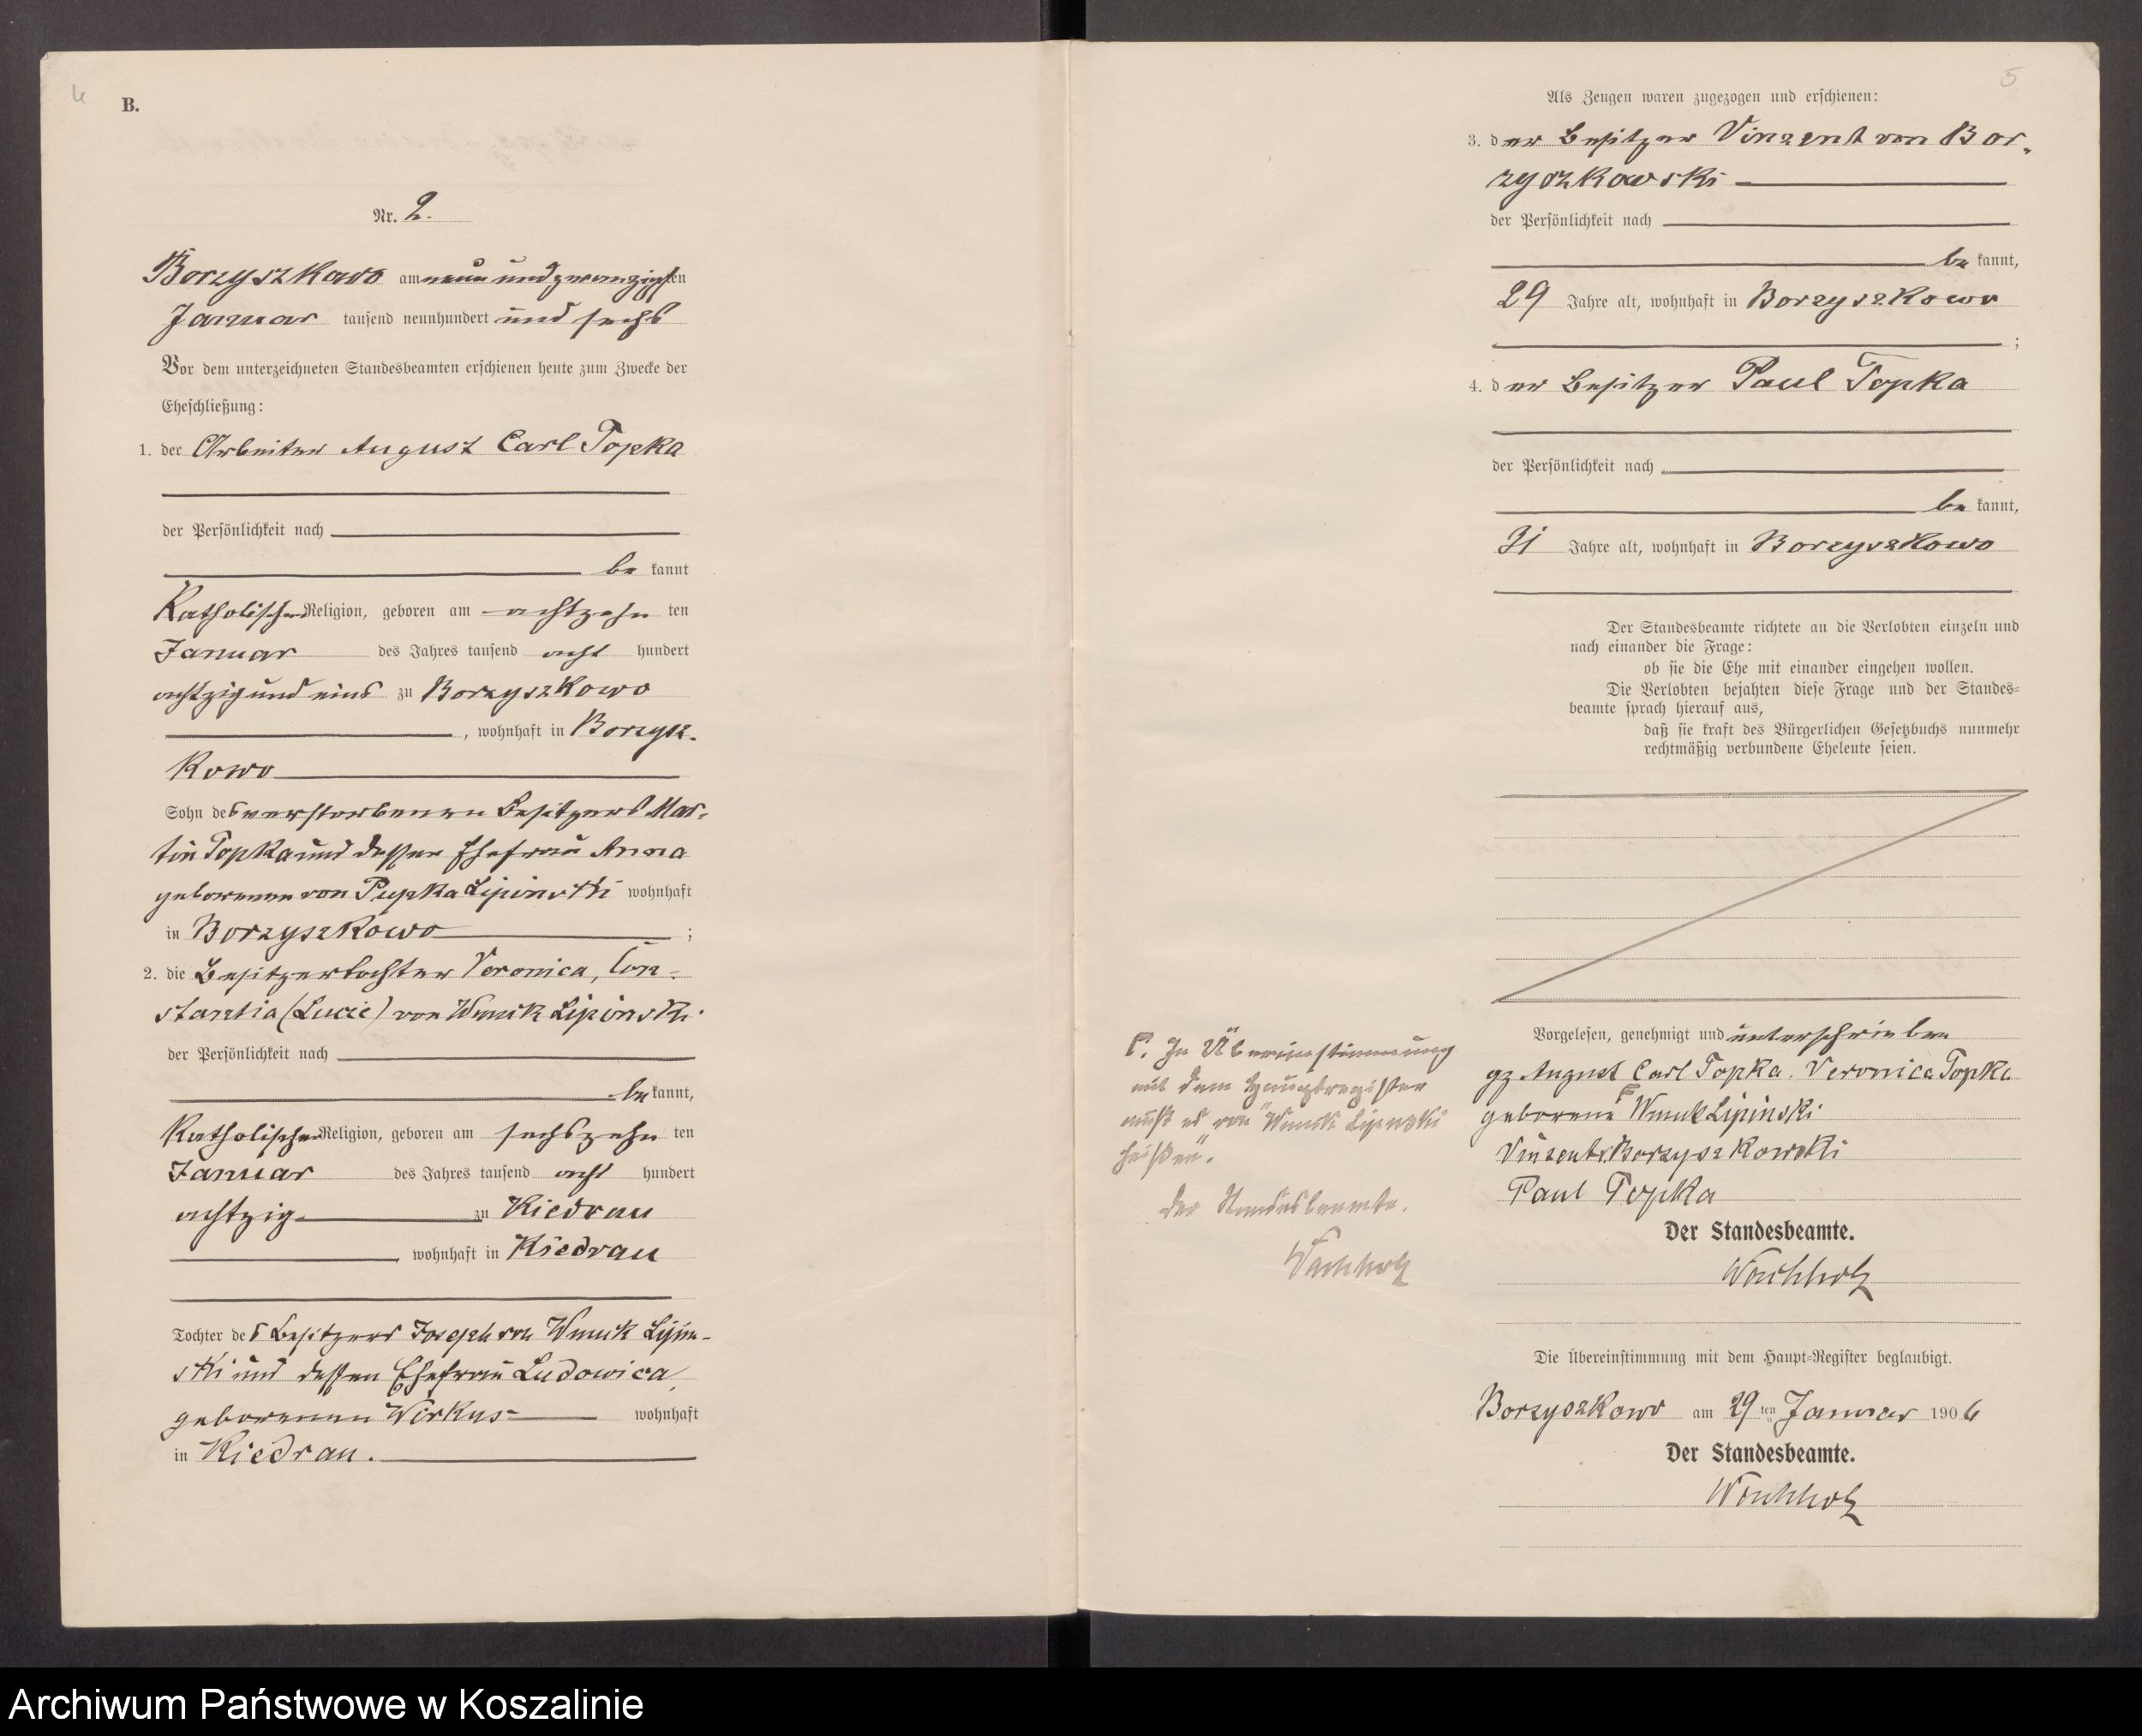 4
B.
Nr. 2.
Borzyszkowo am neun und zwanzigsten
Januar tausend neunhundert und sechs
Vor dem unterzeichneten Standesbeamten erschienen heute zum Zwecke der
Eheschließung:
1. der Arbeiter August Carl Topka
der Persönlichkeit nach
be kannt
Katholischer Religion, geboren am achtzehn ten
Januar des Jahres tausend acht hundert
achtzig und eins zu Borzyszkowo
, wohnhaft in Borzysz-
kowo
Sohn des verstorbenen Besitzers Mar-
tin Topka und dessen Ehefrau Anna
geborenen von Pupka Lipinski wohnhaft
in Borzyszkowo ;
2. die Besitzertochter Veronica, Con-
stantia (Lucie) von Wnuk Lipinski
der Persönlichkeit nach
be kannt,
Katholischer Religion, geboren am sechszehn ten
Januar des Jahres tausend acht hundert
achtzig zu Kiedrau
wohnhaft in Kiedrau
Tochter des Besitzers Joseph von Wnuk Lipin-
ski und dessen Ehefrau Ludowica,
geborenen Wirkus wohnhaft
in Kiedrau.
5
Als Zeugen waren zugezogen und erschienen:
3. der Besitzer Vinzent von Bor-
zyszkowski
der Persönlichkeit nach
be kannt,
29 Jahre alt, wohnhaft in Borzyszkowo
;
4. der Besitzer Paul Topka
der Persönlichkeit nach
be kannt,
31 Jahre alt, wohnhaft in Borzyszkowo
Der Standesbeamte richtete an die Verlobten einzeln und
nach einander die Frage:
ob sie die Ehe mit einander eingehen wollen.
Die Verlobten bejahten diese Frage und der Standes-
beamte sprach hierauf aus,
daß sie kraft des Bürgerlichen Gesetzbuchs nunmehr
rechtmäßig verbundene Eheleute seien.
Vorgelesen, genehmigt und unterschrieben
gz August Carl Topka. Veronica Topka
geborene Γ Wnuk Lipinski
Vinzent v. Borzyszkowski
Paul Topka
Der Standesbeamte.
Wachholz
Γ. In Übereinstimmung
mit dem Hauptregister
muß es "von Wnuck Lipinski
heißen".
Der Standesbeamte.
Wachholz
Die Übereinstimmung mit dem Haupt-Register beglaubigt.
Borzyszkowo am 29 ten Januar 1906
Der Standesbeamte.
Wachholz
Archiwum Państwowe w Koszalinie